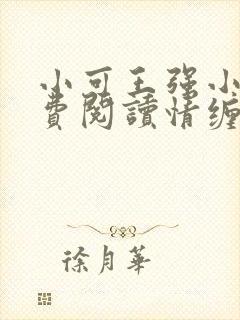 小可王强小
费閱讀情缠
徐月華